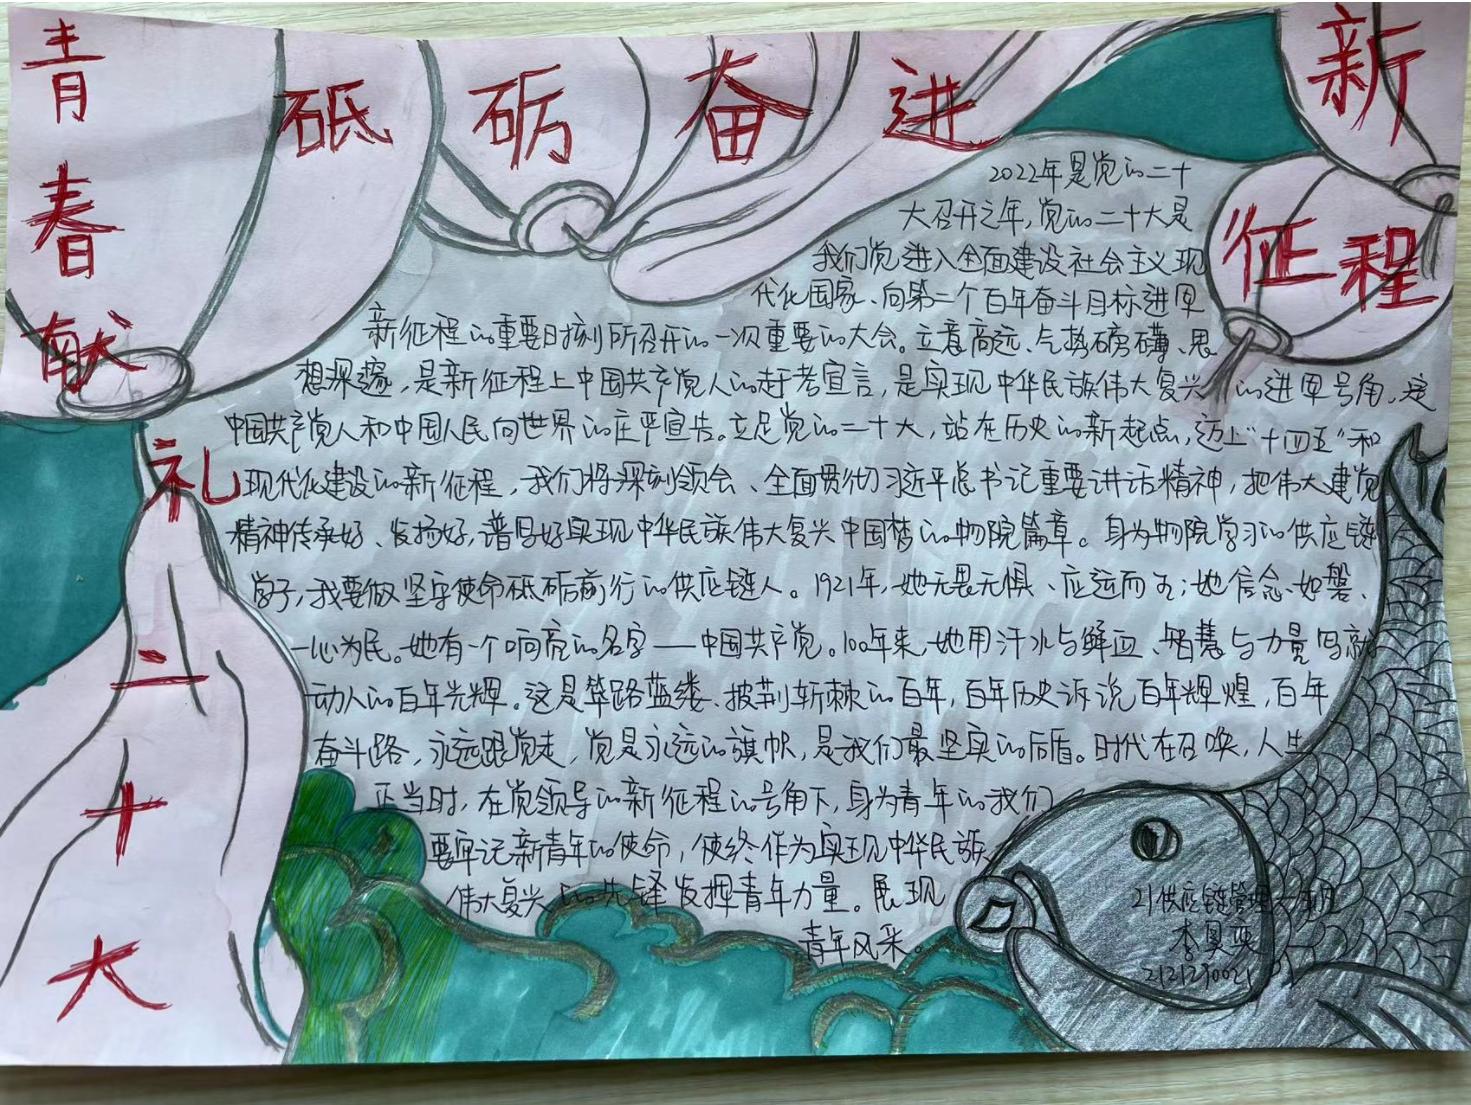 砥砺奋进
新
征程
青春献
礼
二十大
2022年是党的二十
大召开之年，党的二十大是
我们党进入全面建设社会主义现
代化国家、向第二个百年奋斗目标进军
新征程的重要时刻所召开的一次重要的大会。立意高远、气势磅礴、思
想深邃，是新征程上中国共产党人的赶考宣言，是实现中华民族伟大复兴的进军号角，是
中国共产党人和中国人民向世界的庄严宣告。立足党的二十大，站在历史的新起点，迈上“十四五”和
现代化建设的新征程，我们将深刻领会、全面贯彻习近平总书记重要讲话精神，把伟大建党
精神传承好、发扬好，谱写好实现中华民族伟大复兴中国梦的物院篇章。身为物院学习的供应链
学子，我要做坚守使命砥砺前行的供应链人。1921年，她无畏无惧、应运而为；她信念如磐、
一心为民。她有一个响亮的名字——中国共产党。100年来她用汗水与鲜血、智慧与力量写就
动人的百年光辉。这是筚路蓝缕、披荆斩棘的百年，百年历史诉说百年辉煌，百年
奋斗路，永远跟党走，党是永远的旗帜，是我们最坚实的后盾。时代在召唤，人生
正当时，在党领导的新征程的号角下，身为青年的我们
要牢记新青年的使命，使终作为实现中华民族
伟大复兴的先锋发挥青年力量。展现
青年风采。
21供应链管理
李
212190021